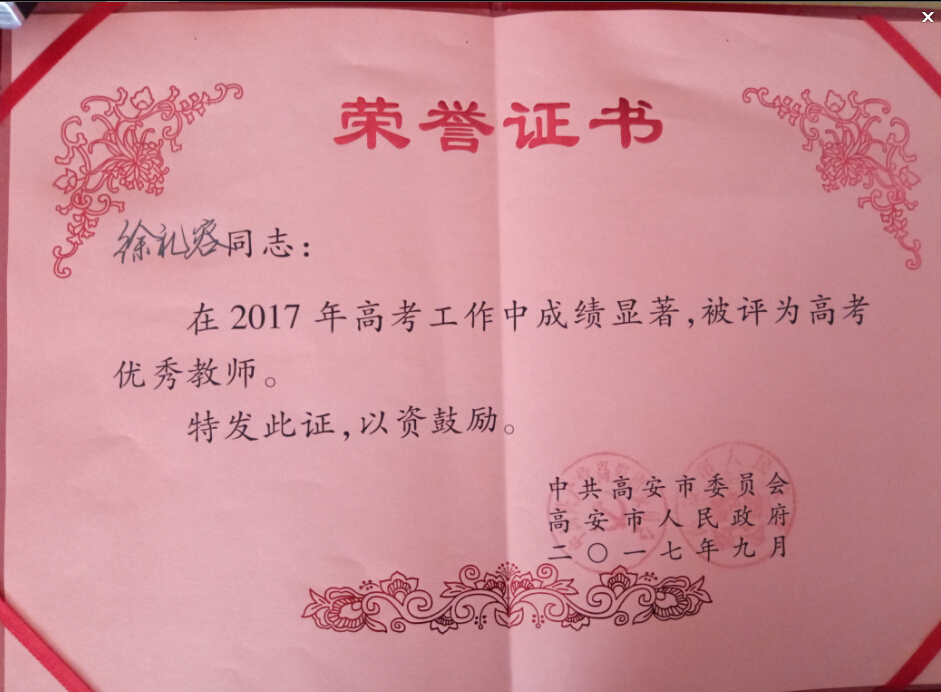 荣誉证书
徐礼容同志：
在2017年高考工作中成绩显著，被评为高考
优秀教师。
特发此证，以资鼓励。
中共高安市委员会
高安市人民政府
二〇一七年九月